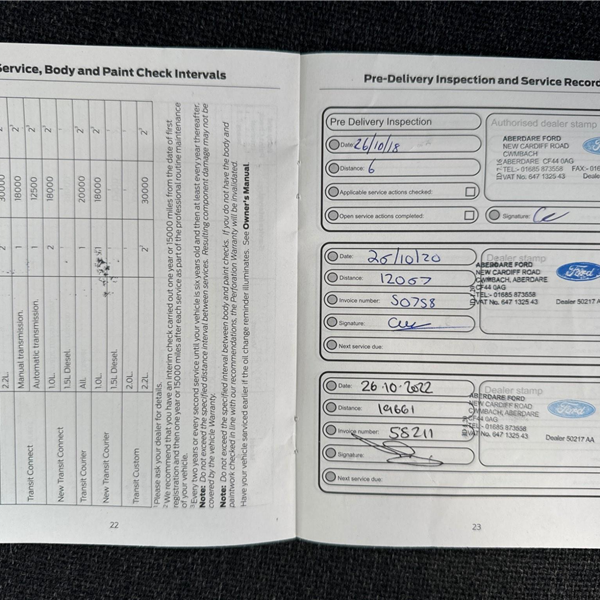 Service, Body and Paint Check Intervals
2.2L. 2¹ 30000 2¹
Manual transmission. 1 18000 2¹
Transit Connect Automatic transmission. 1 12500 2¹
1.0L. 2 18000 2¹
New Transit Connect 1.5L Diesel.
Transit Courier All. 1 20000 2¹
New Transit Courier 1.0L. 18000 2¹
1.5L Diesel.
Transit Custom 2.0L.
2.2L. 2¹ 30000 2¹
¹Please ask your dealer for details.
²We recommend that you have an interim check carried out one year or 15000 miles from the date of first
registration and then one year or 15000 miles after each service as part of the professional routine maintenance
of your vehicle.
³Every two years or every second service until your vehicle is six years old and then at least every year thereafter.
Note: Do not exceed the specified distance interval between services. Resulting component damage may not be
covered by the vehicle Warranty.
Note: Do not exceed the specified interval between body and paint checks. If you do not have the body and
paintwork checked in line with our recommendations, the Perforation Warranty will be invalidated.
Have your vehicle serviced earlier if the oil change reminder illuminates. See Owner's Manual.
22
Pre-Delivery Inspection and Service Record
Pre Delivery Inspection
Date: 26/10/18
Distance: 6
Applicable service actions checked:
Open service actions completed:
Authorised dealer stamp
ABERDARE FORD
NEW CARDIFF ROAD
CWMBACH
ABERDARE CF44 0AG
TEL:- 01685 873558 FAX:- 016
VAT No. 647 1325 43 Deale
Signature:
Date: 26/10/20
Distance: 12057
Invoice number: 50758
Signature:
Next service due:
Dealer stamp
ABERDARE FORD
NEW CARDIFF ROAD
CWMBACH, ABERDARE
CF44 0AG
TEL:- 01685 873558
VAT No. 647 1325 43
Ford
Dealer 50217 A
Date: 26.10.2022
Distance: 19661
Invoice number: 58211
Signature:
Next service due:
Dealer stamp
ABERDARE FORD
NEW CARDIFF ROAD
CWMBACH, ABERDARE
CF44 0AG
TEL:- 01685 873558
VAT No. 647 1325 43
Ford
Dealer 50217 AA
23